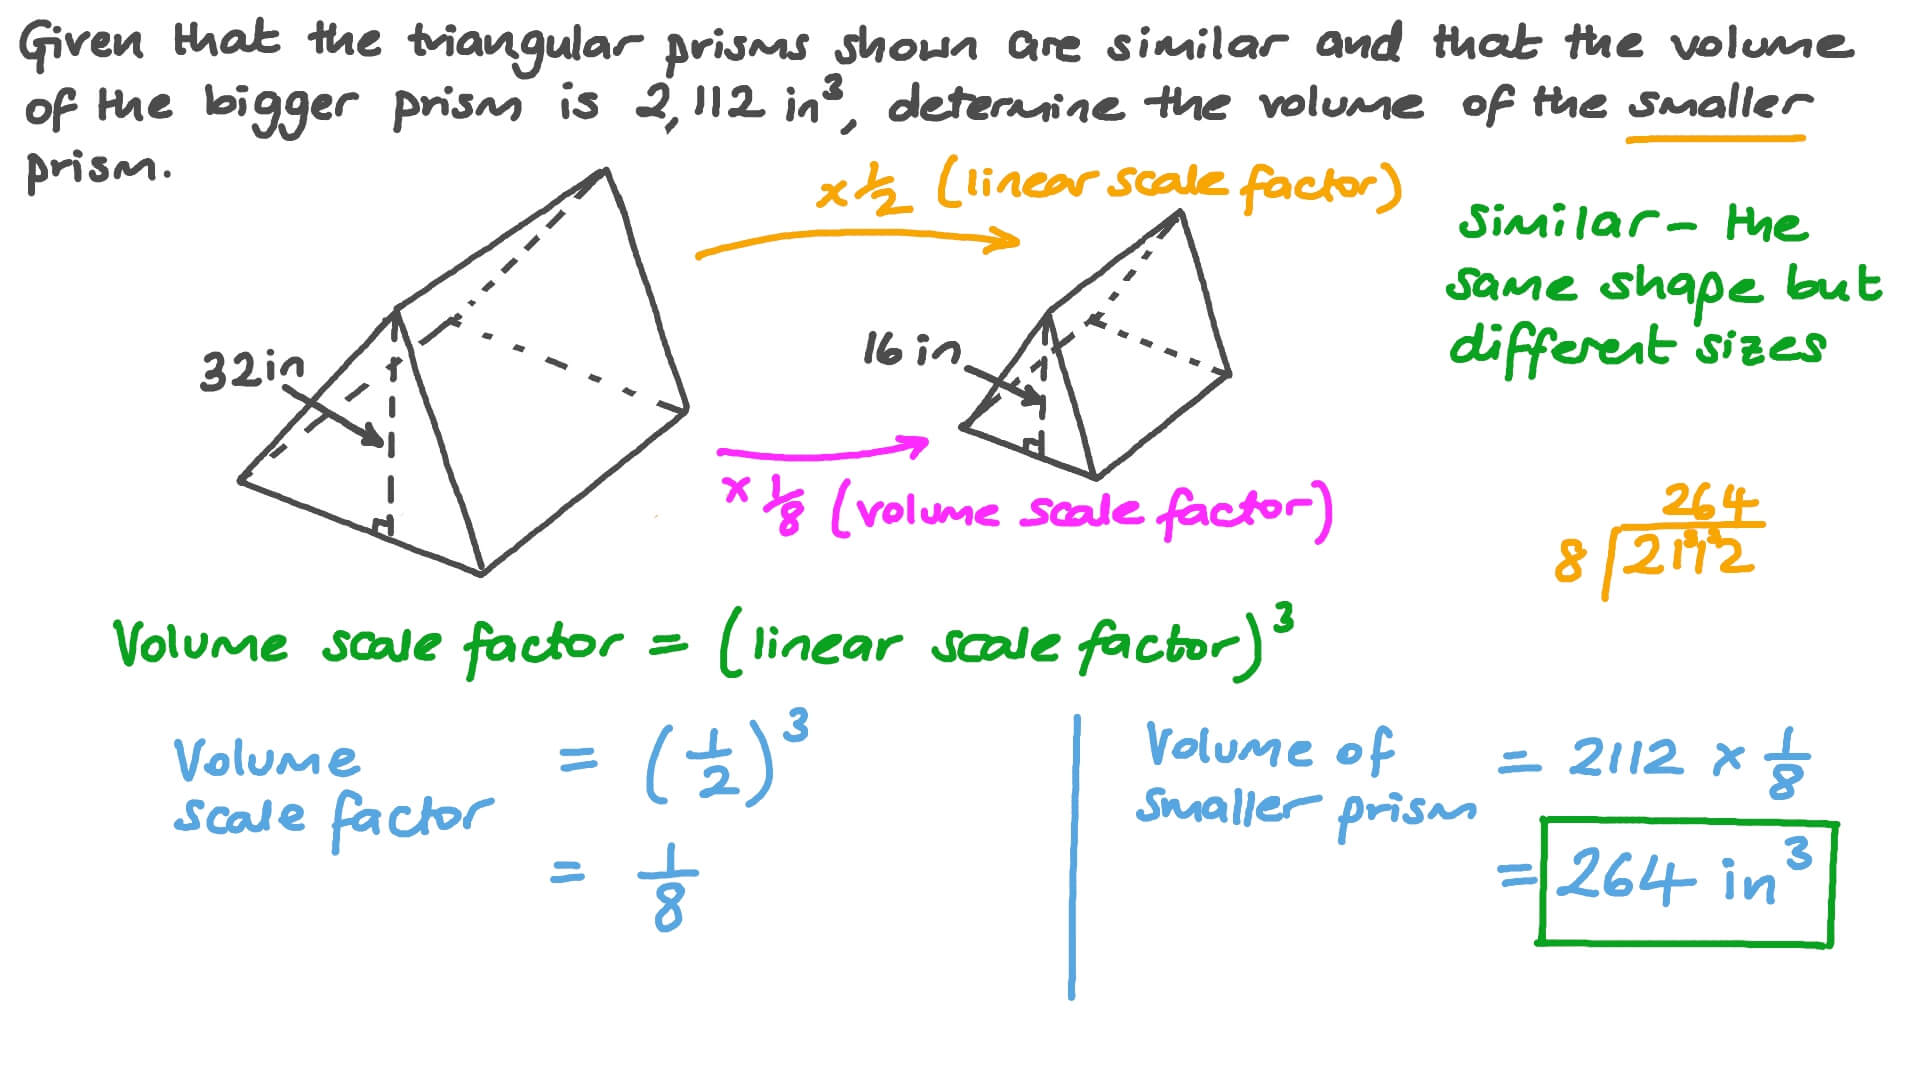 Given that the triangular prisms shown are similar and that the volume
of the bigger prism is 2,112 in³, determine the volume of the smaller
prism.
×1/2 (linear scale factor)
similar - the
same shape but
different sizes
32in
16 in
×1/8 (volume scale factor)
264
8 2112
3 3
Volume scale factor = (linear scale factor)³
Volume
scale factor
= (1/2)³
= 1/8
Volume of
smaller prism
= 2112 × 1/8
= 264 in³